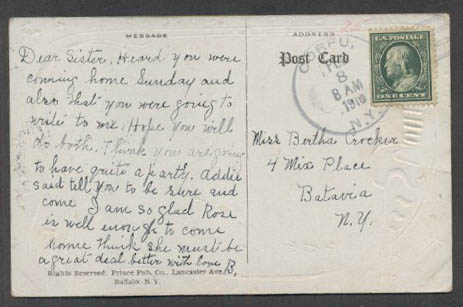 MESSAGE
Dear Sister, Heard you were
coming home Sunday and
also that you were going to
write to me. Hope you will
do both. Think you are going
to have quite a party. Addie
said tell you to be sure and
come I am so glad Rose
is well enough to come
home think she must be
a great deal better with love B.
Rights Reserved. Prince Pub. Co., Lancaster Ave.
Buffalo. N.Y.
ADDRESS
Post Card
CORFU,
FEB
8
8 AM
1910
N.Y.
U.S. POSTAGE
ONE CENT
Miss Bertha Crocker
4 Mix Place
Batavia
N.Y.